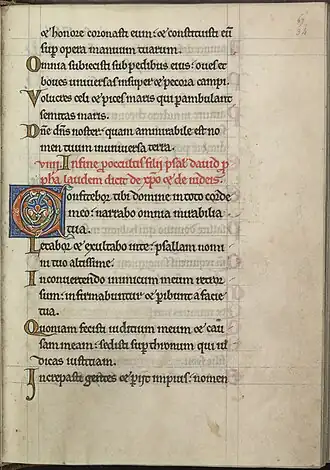 & honore coronasti eum: & constituisti eū
sup opera manuum tuarum.
Omnia subiecisti sub pedibus eius: oues et
boues uniuersas insuper & pecora campi.
Volucres celi & pisces maris qui pambulant
semitas maris.
Dn̄e dn̄s noster: quam ammirabile est no
men tuum in uniuersa terra.
viiii In fine p occultis filii psal' dauid p
pha laudem dicit de xp̄o & de iudeis.
Confitebor tibi domine in toto corde
meo: narrabo omnia mirabilia
tua.
Letabor & exultabo in te: psallam nomi
ni tuo altissime.
In conuertendo inimicum meum retror
sum: infirmabuntur & pibunt a facie
tua.
Quoniam fecisti iuditium meum & cau
sam meam: sedisti sup thronum qui iu
dicas iustitiam.
Increpasti gentes & periit impius: nomen